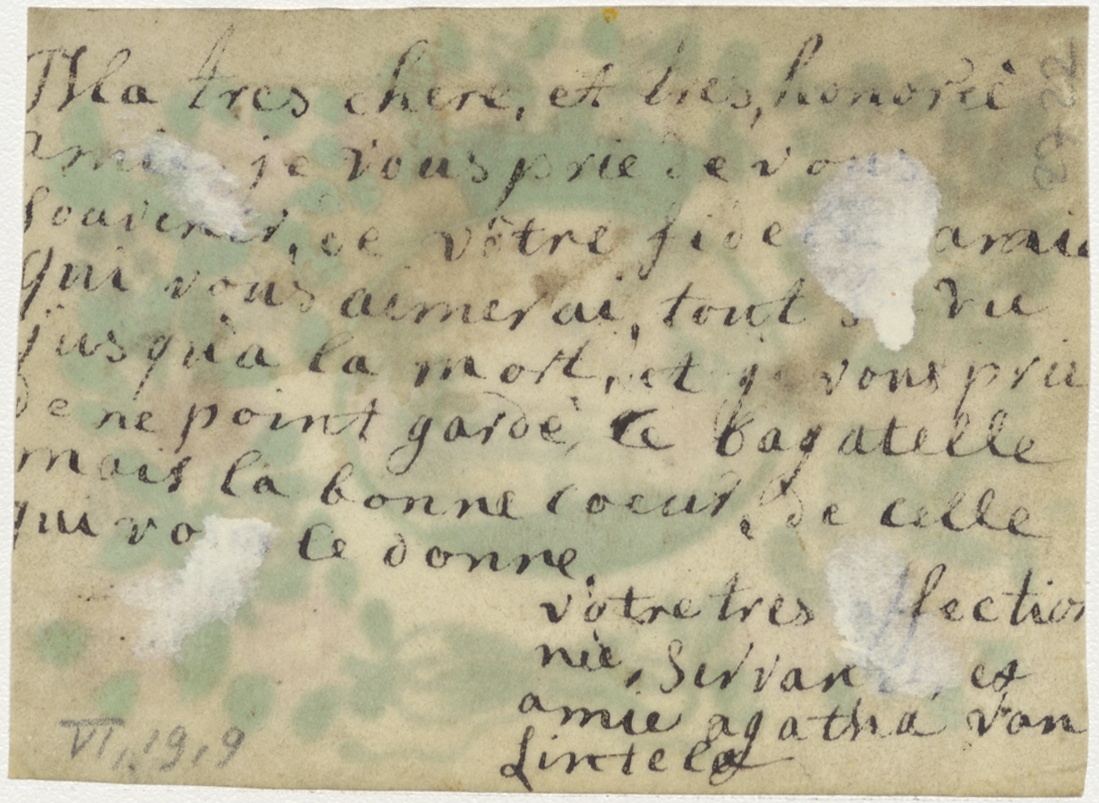 Ma tres chere, et tres, honoreè
amie je vous prie de vous
souvenir, de vôtre fide amie
qui vous aimerai, tout sa vie
jusqu'a la mort, et je vous prie
de ne point gardè, Ce bagatelle
mais la bonne coeur, de celle
qui vous Ce donne.
vôtre tres affection
nèe, Servante, et
amie agatha van
Lintelo
VI, 19, 9